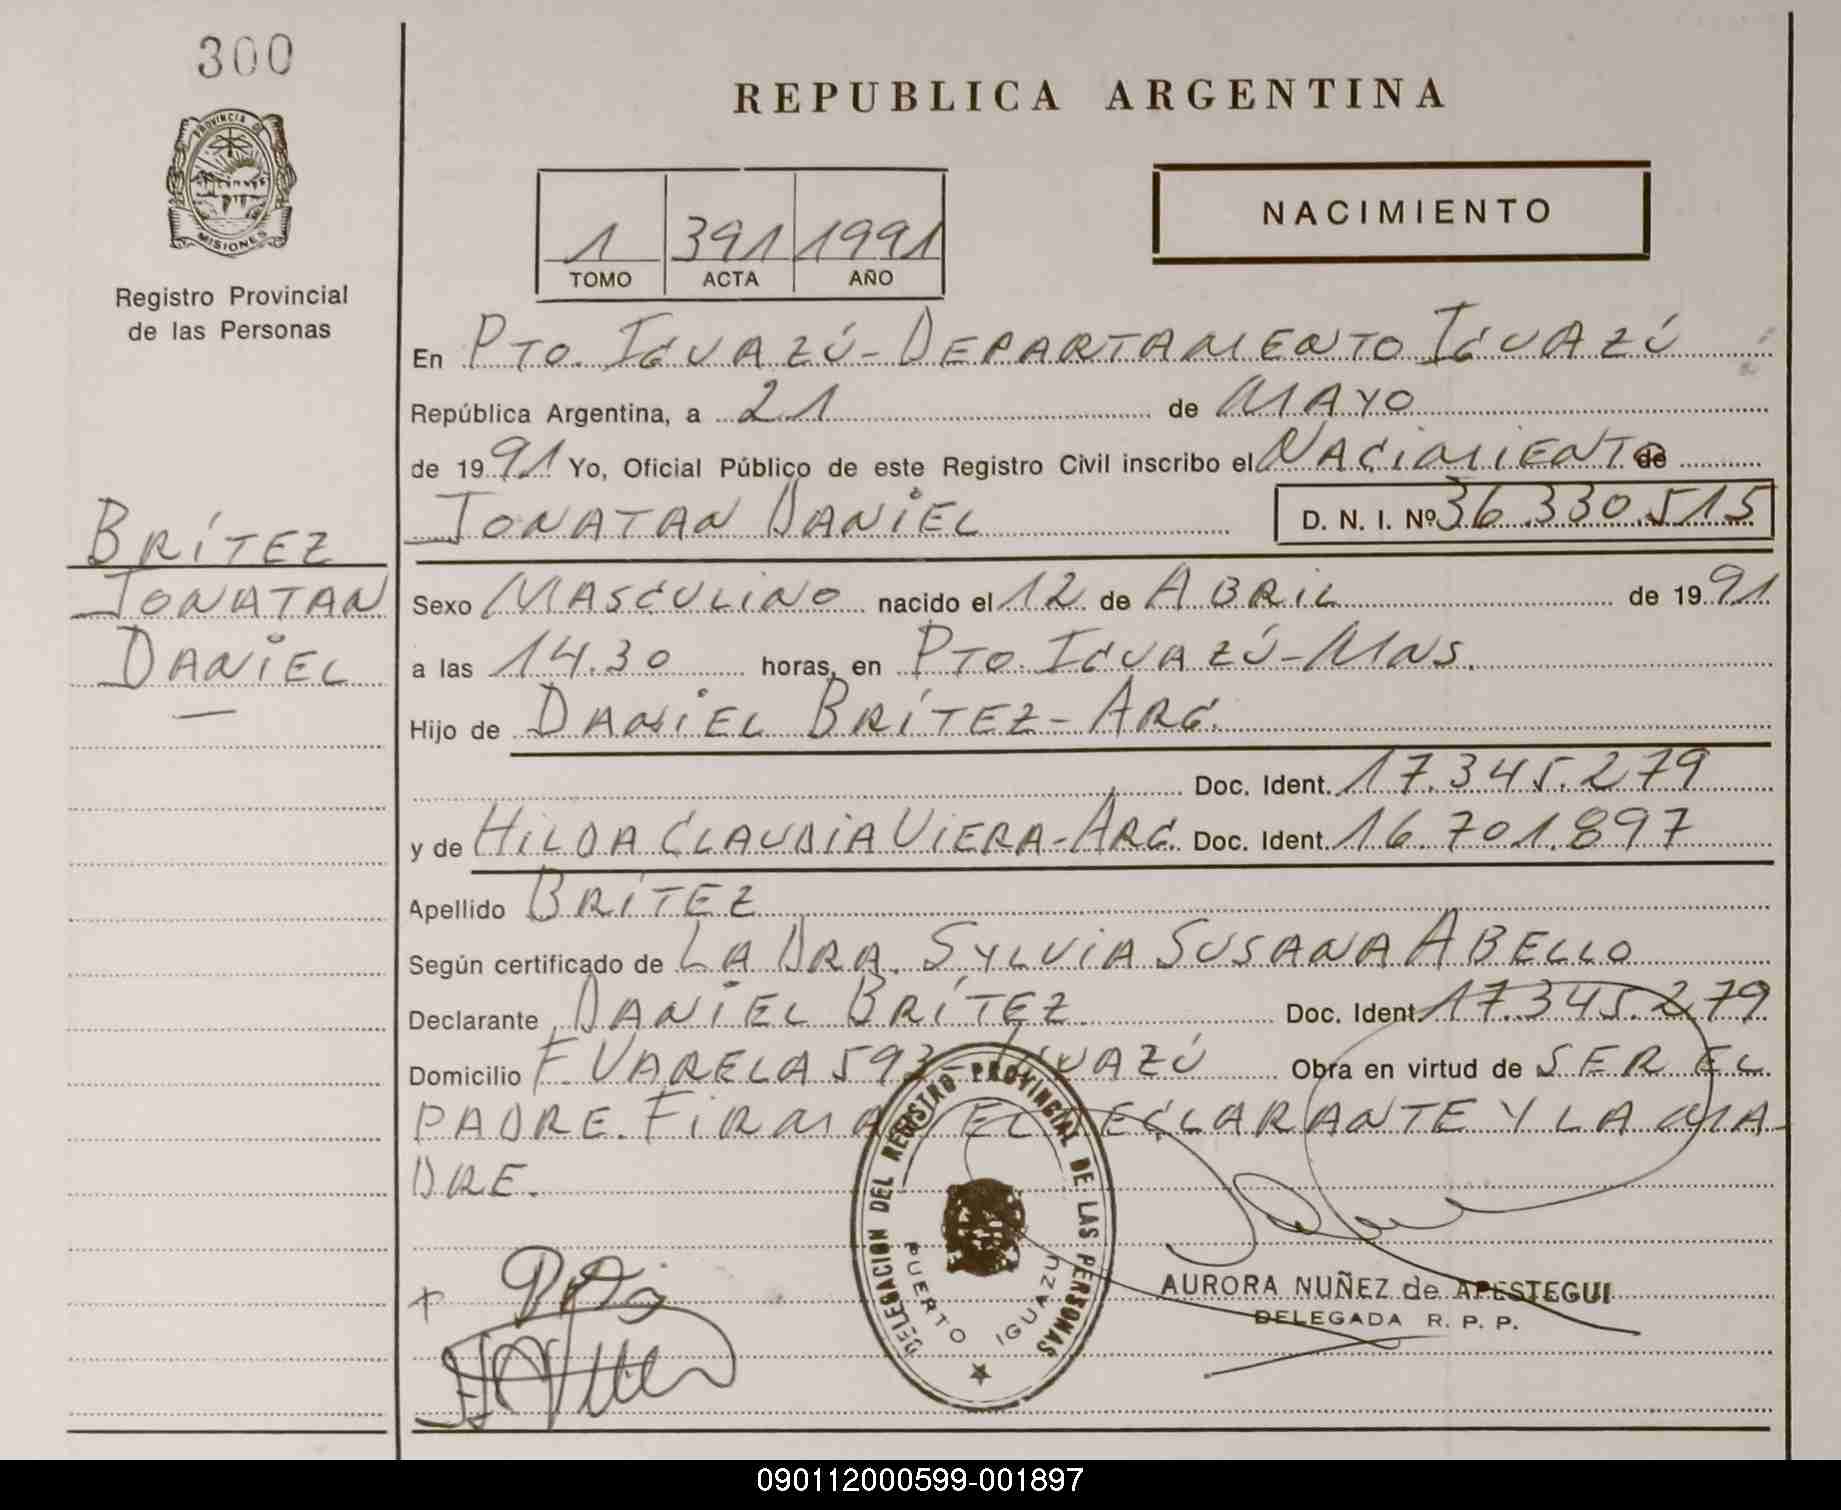 300
PROVINCIA DE
MISIONES
Registro Provincial
de las Personas
BRÍTEZ
JONATAN
DANIEL
REPUBLICA ARGENTINA
1 391 1991
TOMO ACTA AÑO
NACIMIENTO
En PTO. IGUAZÚ - DEPARTAMENTO IGUAZÚ
República Argentina, a 21 de MAYO
de 1991 Yo, Oficial Público de este Registro Civil inscribo el NACIMIENTO de
JONATAN DANIEL D. N. I. Nº 36.330.515
Sexo MASCULINO nacido el 12 de ABRIL de 1991
a las 14.30 horas, en PTO. IGUAZÚ - MNS.
Hijo de DANIEL BRÍTEZ - ARG.
Doc. Ident. 17.345.279
y de HILDA CLAUDIA VIERA - ARG. Doc. Ident. 16.701.897
Apellido BRÍTEZ
Según certificado de LA DRA. SYLVIA SUSANA ABELLO
Declarante DANIEL BRÍTEZ Doc. Ident. 17.345.279
Domicilio F. VARELA 593 - IGUAZÚ Obra en virtud de SER EL
PADRE. FIRMA EL DECLARANTE Y LA MA-
DRE.
DELEGACION DEL REGISTRO PROVINCIAL DE LAS PERSONAS
PUERTO IGUAZU
AURORA NUÑEZ de APESTEGUI
DELEGADA R. P. P.
090112000599-001897